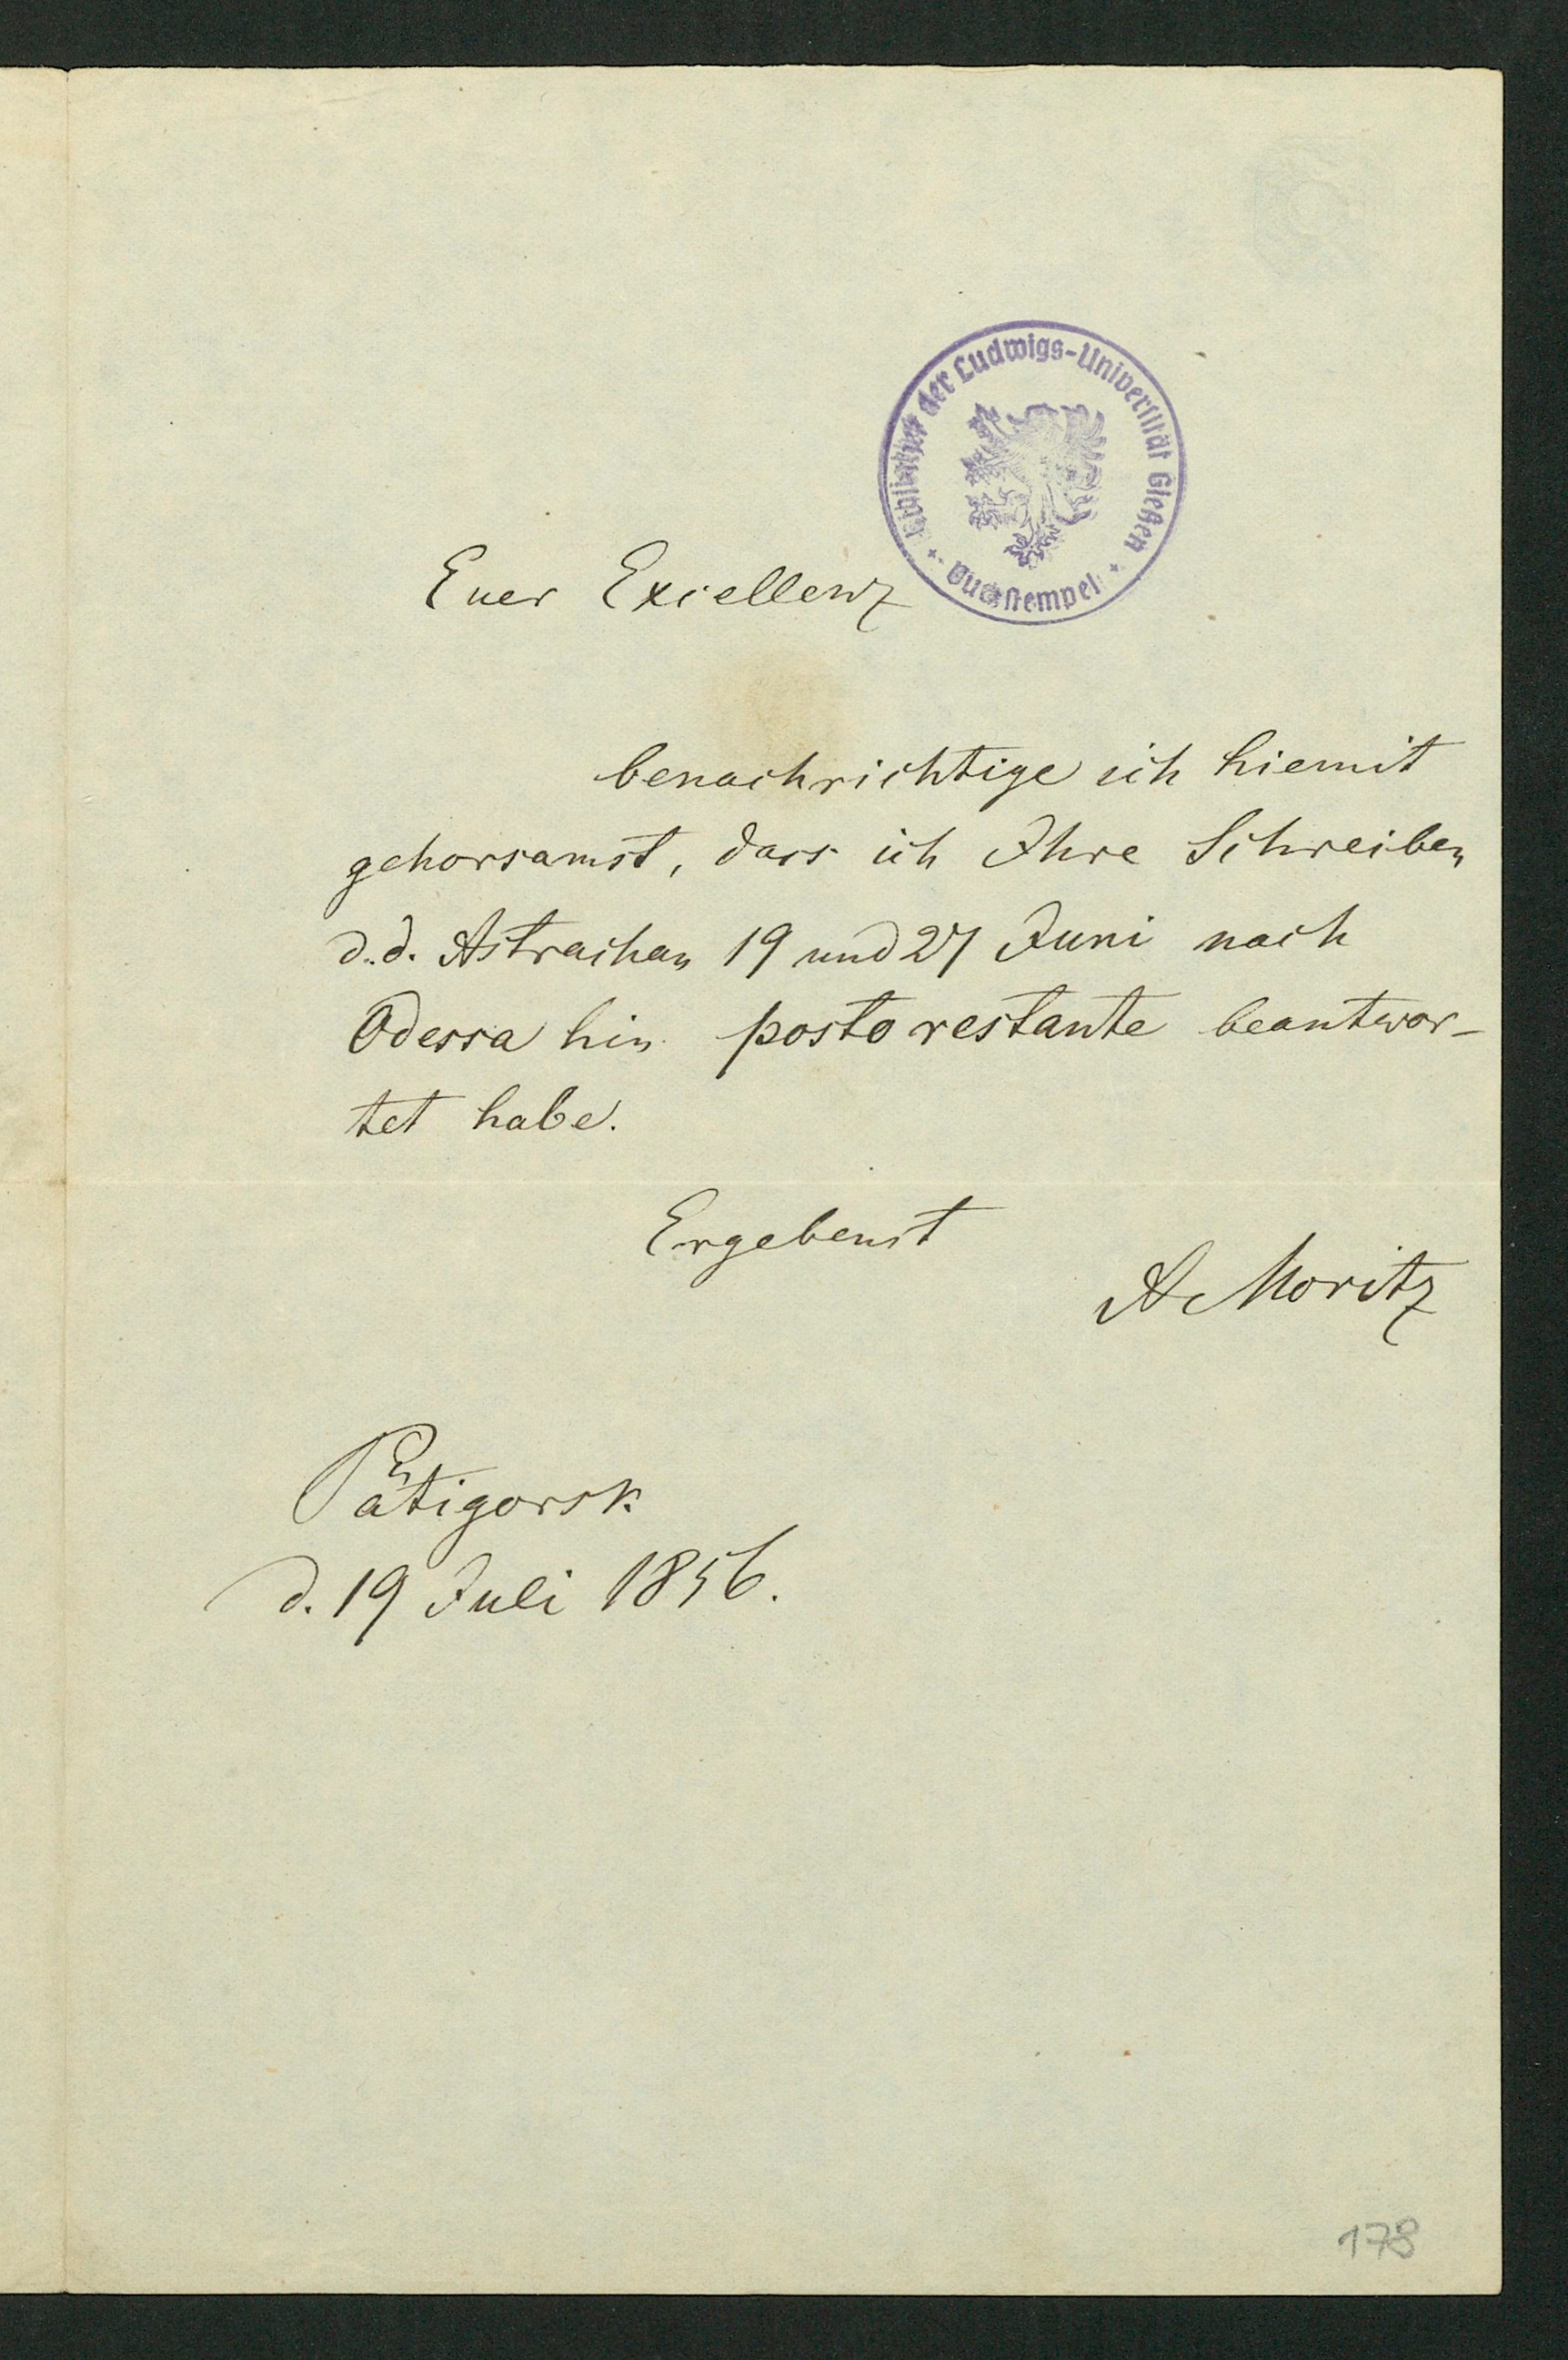 Bibliothek der Ludwigs-Universität Gießen
Buchstempel
Euer Excellenz
benachrichtige ich hiemit
gehorsamst, dass ich Ihre Schreiben
d.d. Astrachan 19 und 27 Juni nach
Odessa hin posto restante beantwor-
tet habe.
Ergebenst
A Moritz
Pätigorsk
d. 19 Juli 1856.
178